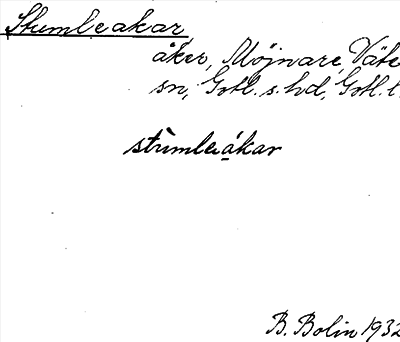 Stumleakar
åker, Mojnare, Väte
sn, Gotl. s. hd, Gotl. l.
stùmleákar
B. Bolin 1932